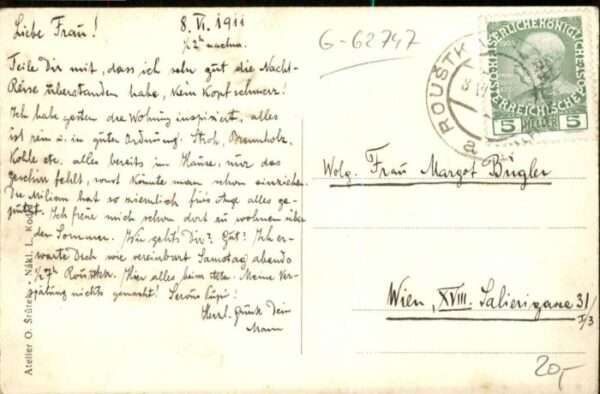 Liebe Frau!
8. VI. 1911
½2h nachm.
Teile Dir mit, dass ich sehr gut die Nacht-
Reise überstanden habe, kein Kopfschmerz!
Ich habe gestern die Wohnung inspiziert, alles
ist rein u. in guter Ordnung. Stroh, Brennholz,
Kohle etc. alles bereits im Hause, nur das
Geschirr fehlt, sonst könnte man schon einziehen.
Die hat so ziemlich fürs Auge alles ge-
putzt. Ich freue mich schon dort zu wohnen über
den Sommer. Wie geht's Dir? Gut! Ich er-
warte Dich wie vereinbart Samstag abends
½7h Roustka. Hier alles beim alten. Meine Ver-
spätung nichts gemacht! Servus Pupi!
Herzl. Gruß Dein
Mann
G-62747
ROUŠTK
KAISERLICHE KÖNIGLICHE
ÖSTERREICHISCHE
5 HELLER 5
Wolg. Frau Margot Bügler
Wien, XVIII. Salierigasse 31/
I/3
20,-
Atelier O. Šrůtek - Nákl. L.